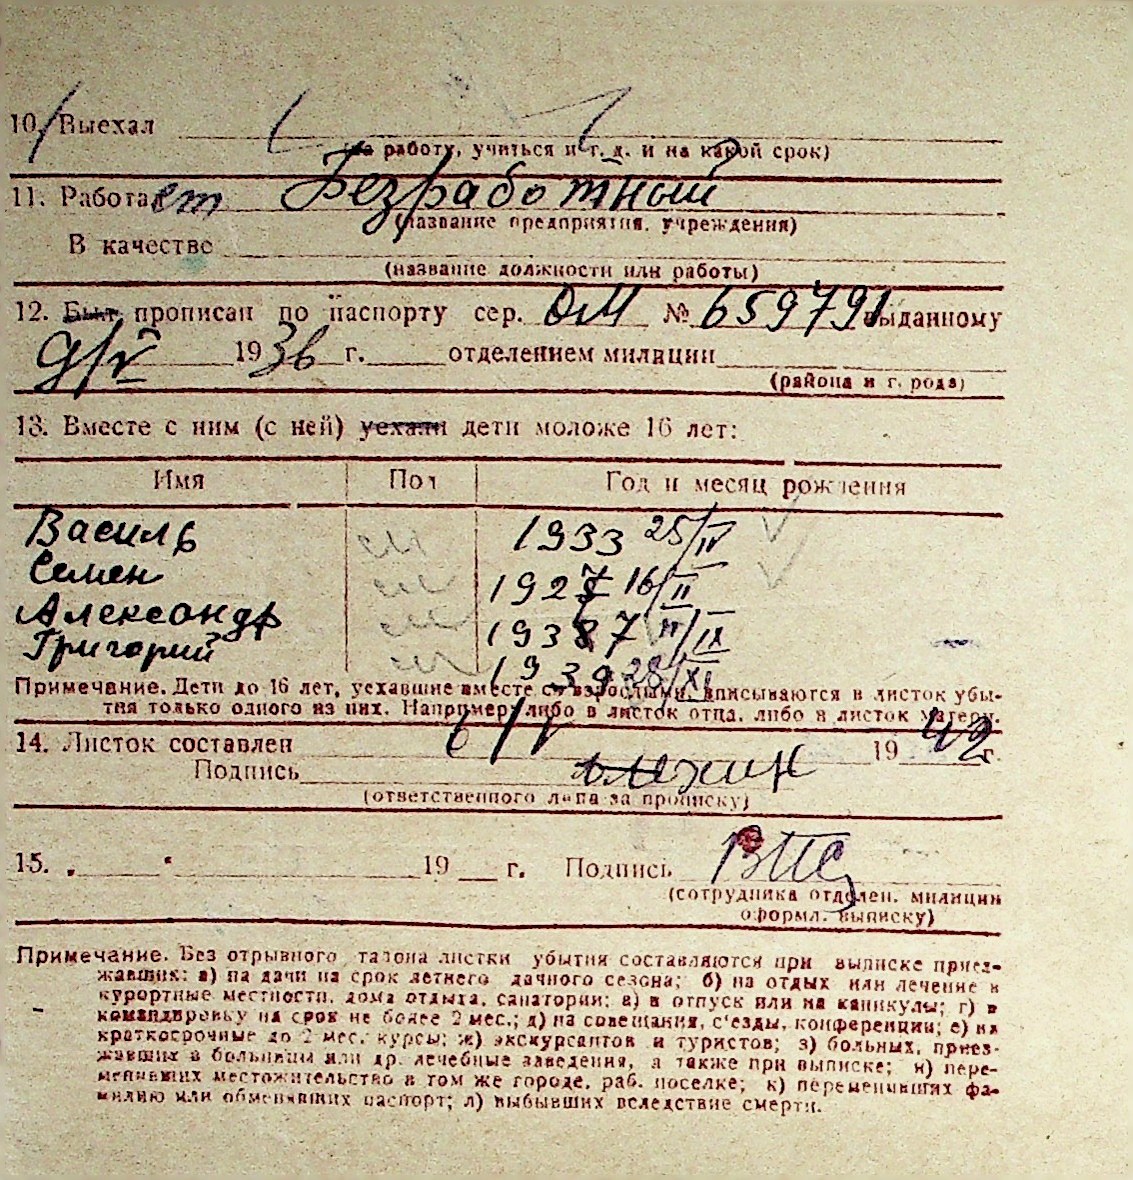 10. Выехал
(на работу, учиться и т. д. и на какой срок)
11. Работает Безработный
(название предприятия, учреждения)
В качестве
(название должности или работы)
12. Был прописан по паспорту сер. ОМ № 659791 выданному
9/V 1936 г. отделением милиции
(района и города)
13. Вместе с ним (с ней) уехали дети моложе 16 лет:
Имя Пол Год и месяц рождения
Василь м 1933 25/IV
Семен м 1927 16/II
Александр м 1938 7 /IX
Григорий м 1939 28/XI
Примечание. Дети до 16 лет, уехавшие вместе со взрослыми, вписываются в листок убы-
тия только одного из них. Например: либо в листок отца, либо в листок матери.
14. Листок составлен 6/V 1942 г.
Подпись
(ответственного лица за прописку)
15. 19 г. Подпись
(сотрудника отделен. милиции
оформл. выписку)
Примечание. Без отрывного талона листки убытия составляются при выписке приез-
жавших: а) на дачи на срок летнего дачного сезона; б) на отдых или лечение в
курортные местности, дома отдыха, санатории; в) в отпуск или на каникулы; г) в
командировку на срок не более 2 мес.; д) на совещания, с'езды, конференции; е) на
краткосрочные до 2 мес. курсы; ж) экскурсантов и туристов; з) больных, приез-
жавших в больницы или др. лечебные заведения, а также при выписке; и) пере-
менивших местожительство в том же городе, раб. поселке; к) переменивших фа-
милию или обменявших паспорт; л) выбывших вследствие смерти.